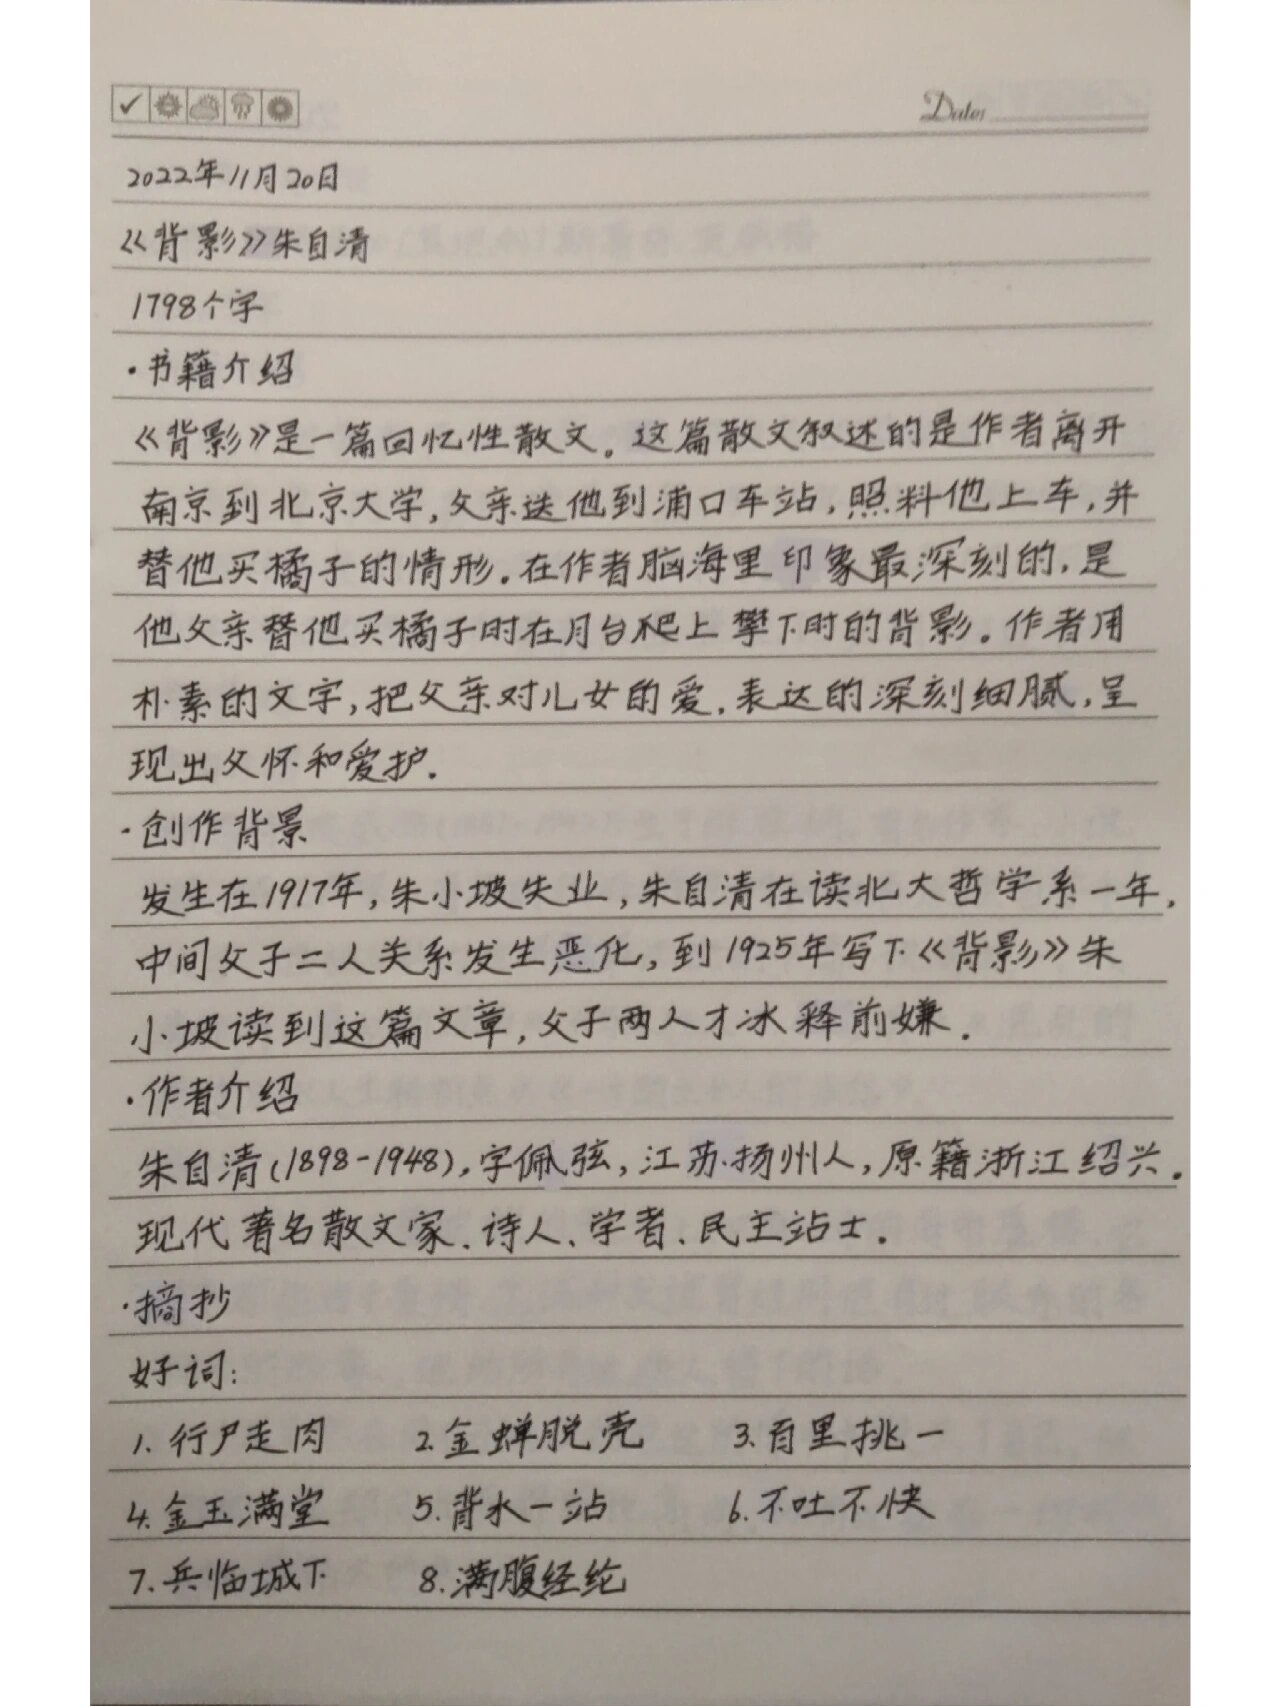 Date:
2022年11月20日
《背影》朱自清
1798个字
·书籍介绍
《背影》是一篇回忆性散文。这篇散文叙述的是作者离开
南京到北京大学,父亲送他到浦口车站,照料他上车,并
替他买橘子的情形。在作者脑海里印象最深刻的,是
他父亲替他买橘子时在月台爬上攀下时的背影。作者用
朴素的文字,把父亲对儿女的爱,表达的深刻细腻,呈
现出父怀和爱护.
·创作背景
发生在1917年,朱小坡失业,朱自清在读北大哲学系一年,
中间父子二人关系发生恶化,到1925年写下《背影》朱
小坡读到这篇文章,父子两人才冰释前嫌.
·作者介绍
朱自清(1898-1948),字佩弦,江苏扬州人,原籍浙江绍兴.
现代著名散文家、诗人、学者、民主站士.
·摘抄
好词:
1.行尸走肉 2.金蝉脱壳 3.百里挑一
4.金玉满堂 5.背水一站 6.不吐不快
7.兵临城下 8.满腹经纶